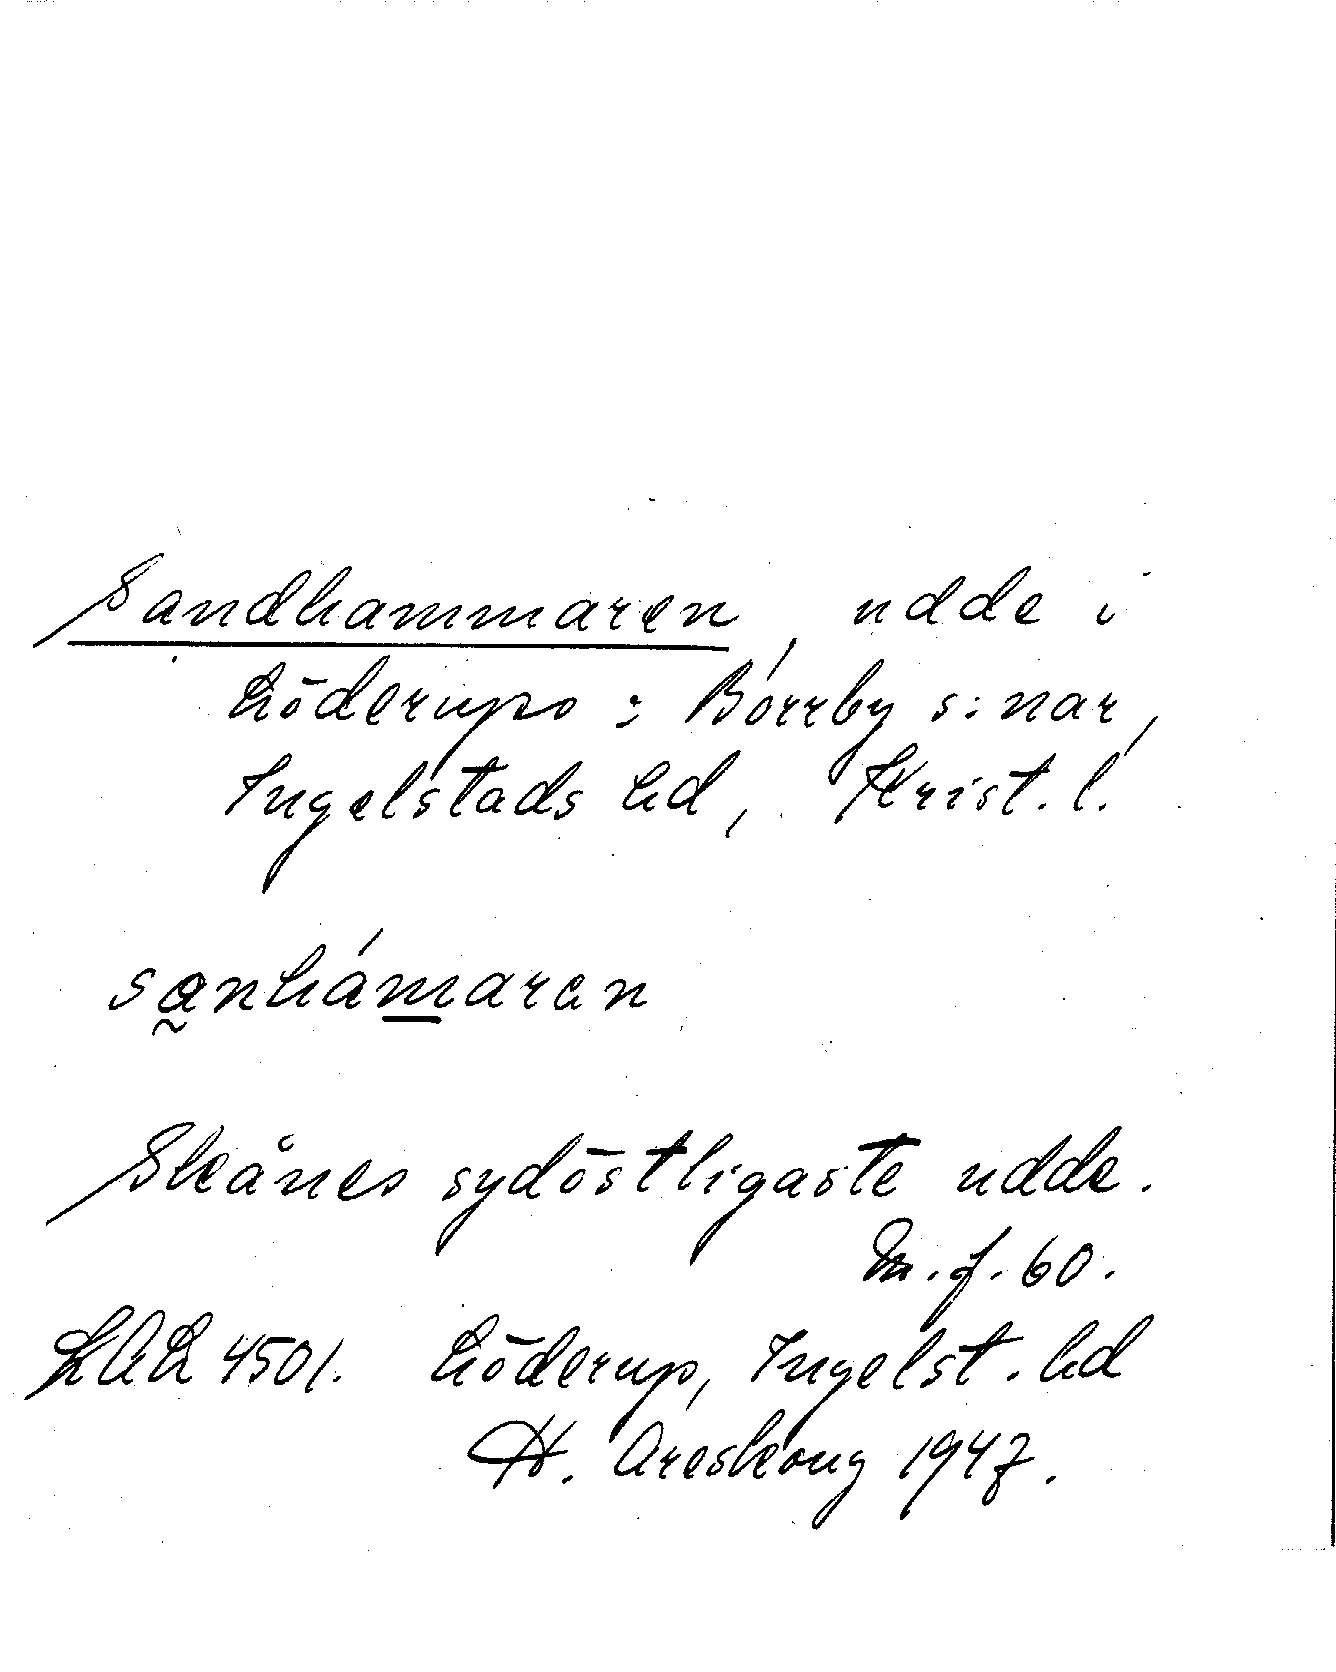 Sandhammaren, udde i
Löderups : Borrby s:nar,
Ingelstads hd, Krist. l.
sa̰nhámaren
Skånes sydöstligaste udde.
M. f. 60.
LAL 4501. Löderup, Ingelst. hd
H. Areskoug 1947.